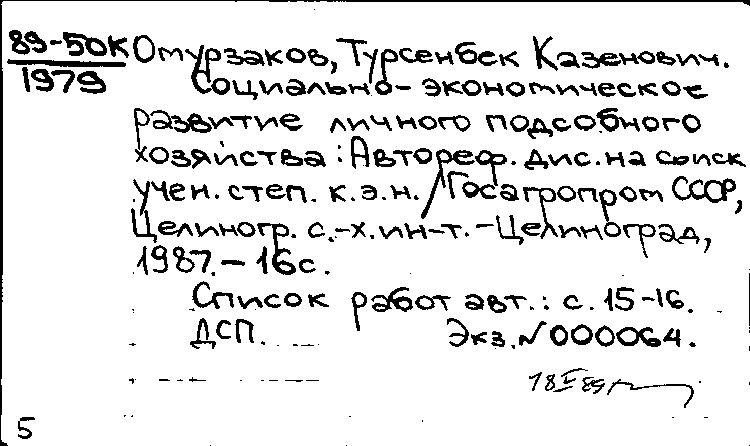 89-50К Омурзаков, Турсенбек Казенович.
1979 Социально-экономическое
развитие личного подсобного
хозяйства: Автореф. дис. на соиск
учен. степ. к.э.н. / Госагропром СССР,
Целиногр. с.-х. ин-т. - Целиноград,
1987. - 16 с.
Список работ авт.: с. 15-16.
ДСП. Экз. N 000064.
18 V 89г
5